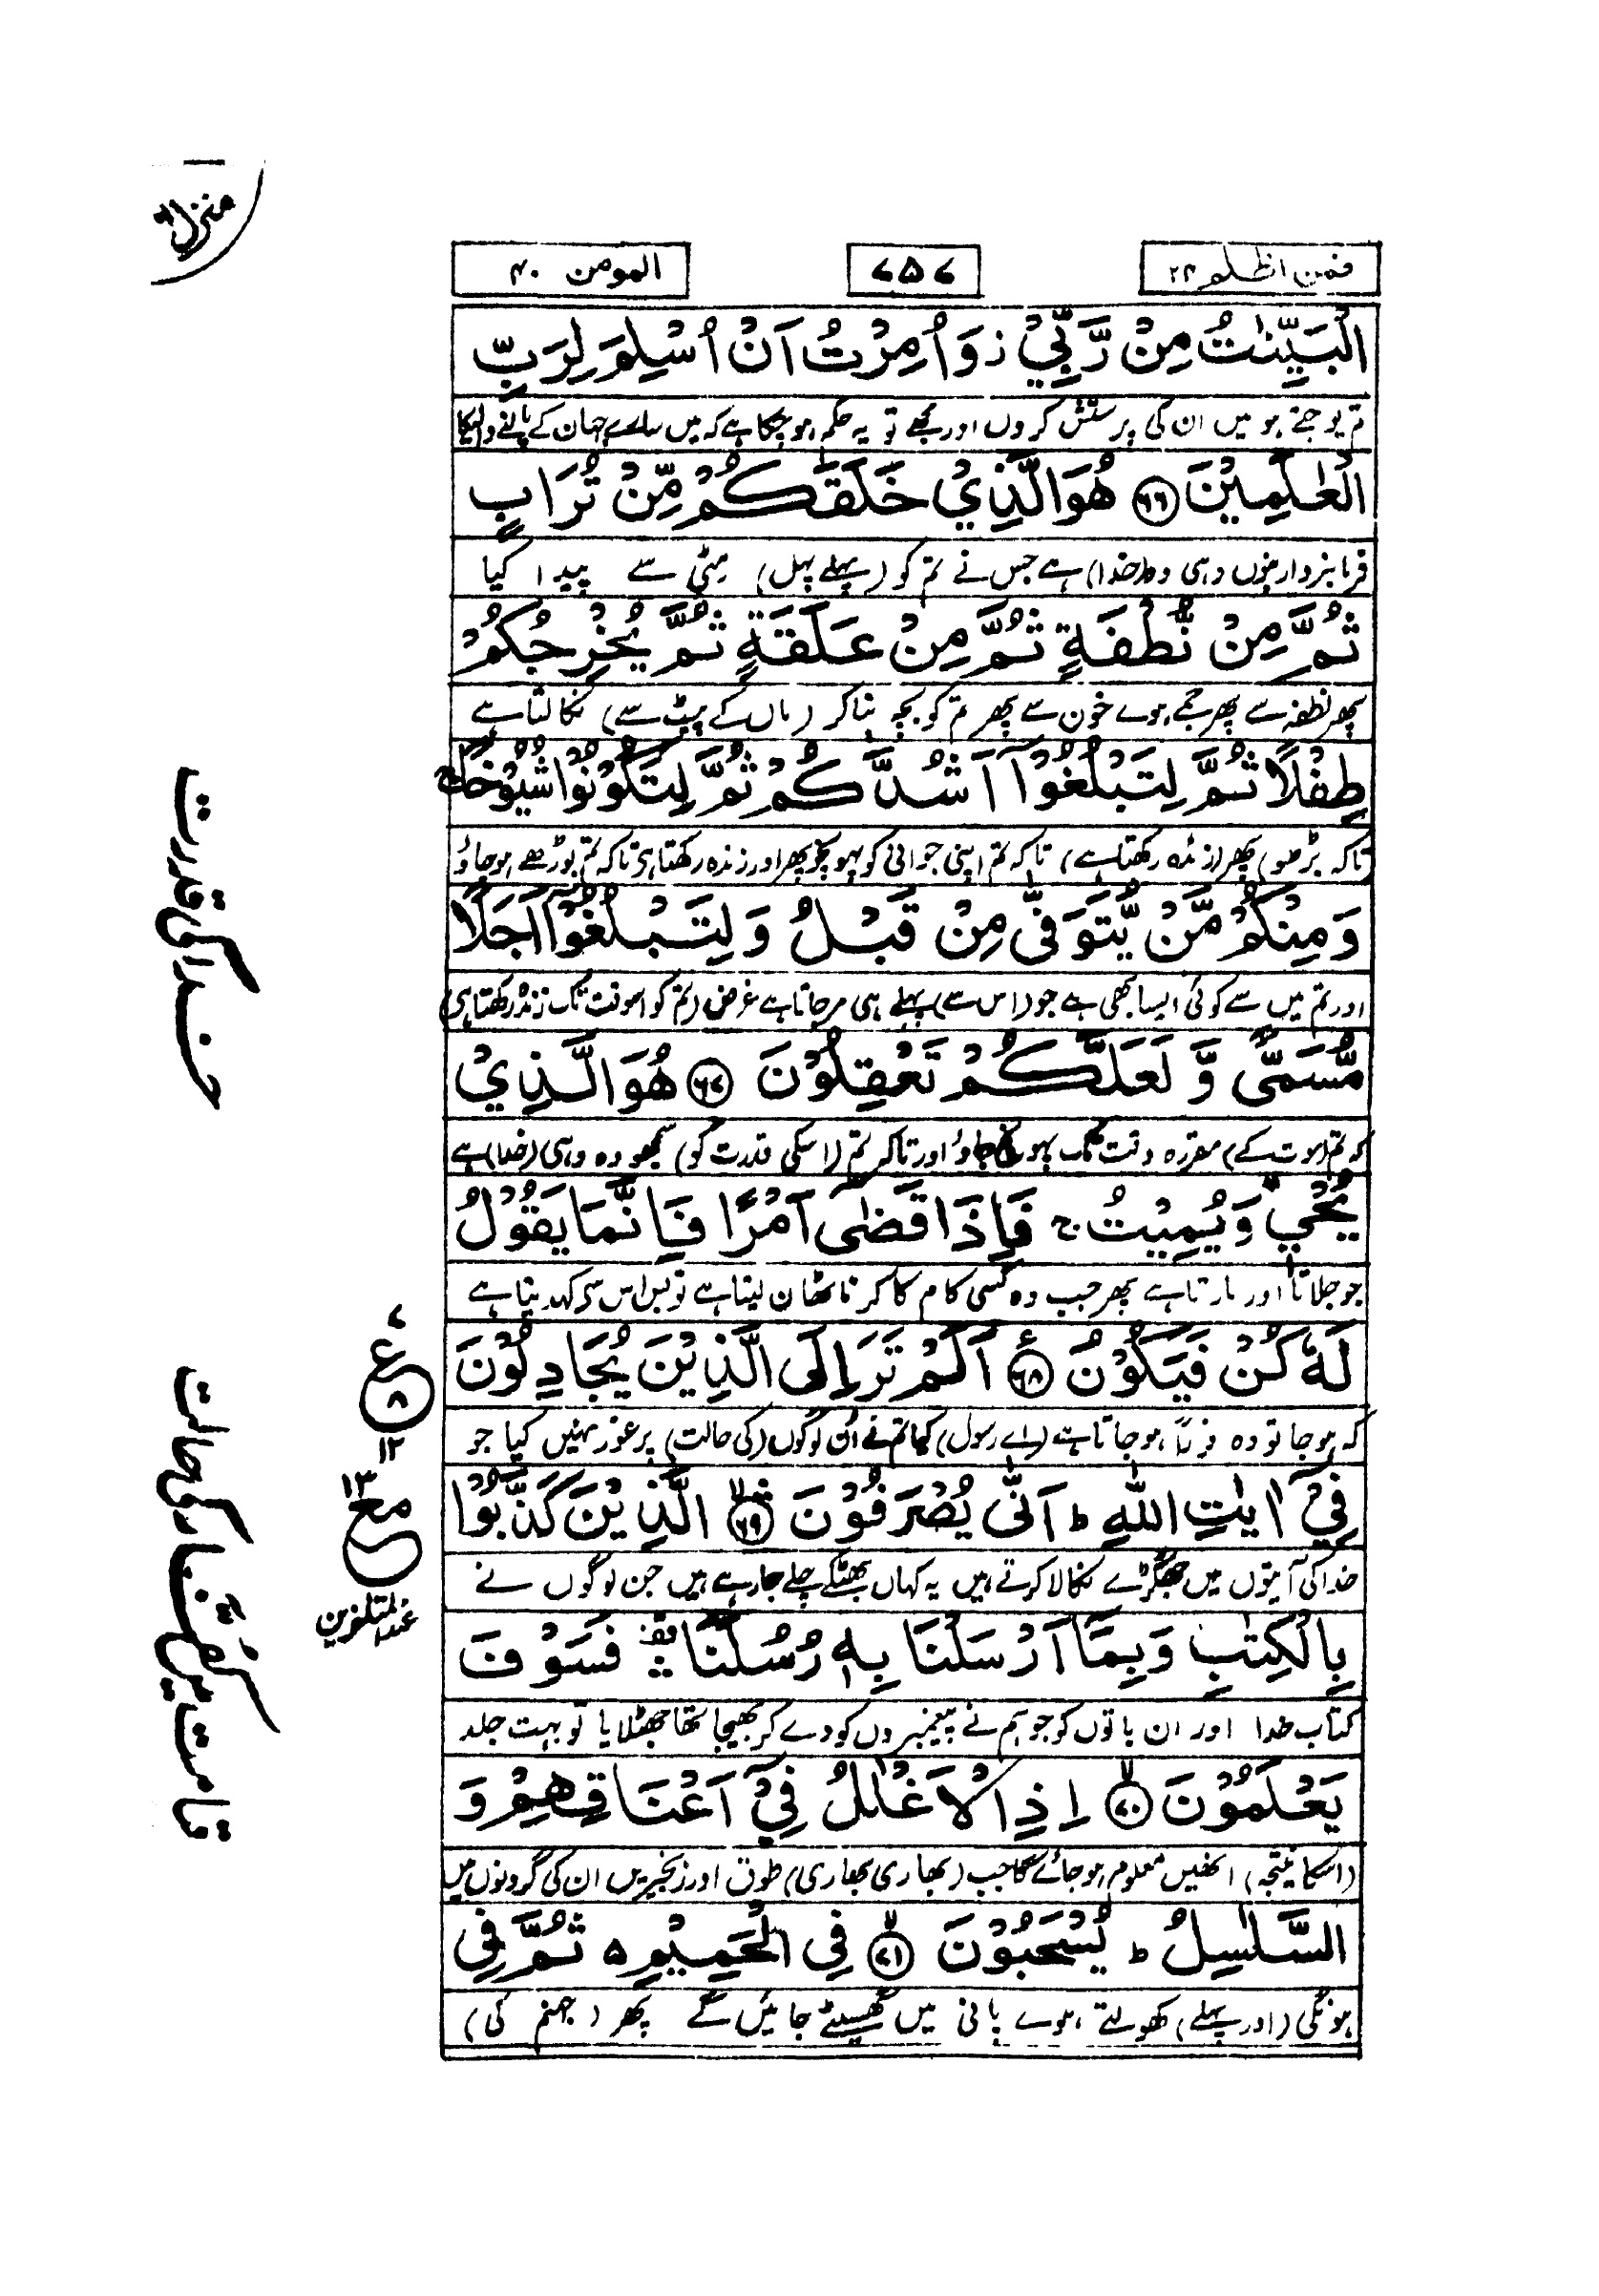 فمن اظلم ۲۴
۷۵۷
المومن ۴۰
منزل
الْبَيِّنٰتُ مِنْ رَّبِّيْ ز وَاُمِرْتُ اَنْ اُسْلِمَ لِرَبِّ
تم پوجتے ہو میں ان کی پرستش کروں اور مجھے تو یہ حکم ہو چکا ہے کہ میں سارے جہان کے پالنے والیکا
الْعٰلَمِيْنَ ۶۶ هُوَ الَّذِيْ خَلَقَكُمْ مِّنْ تُرَابٍ
فرمانبردار بنوں وہی وہ (خدا) ہے جس نے تم کو (پہلے پہل) مٹی سے پیدا کیا
ثُمَّ مِنْ نُّطْفَةٍ ثُمَّ مِنْ عَلَقَةٍ ثُمَّ يُخْرِجُكُمْ
پھر نطفہ سے پھر جمے ہوے خون سے پھر تم کو بچہ بنا کر (ماں کے پیٹ سے) نکالتا ہے
طِفْلًا ثُمَّ لِتَبْلُغُوْٓا اَشُدَّكُمْ ثُمَّ لِتَكُوْنُوْا شُيُوْخًا ج
تاکہ بڑھو) پھر (زندہ رکھتا ہے) تاکہ تم اپنی جوانی کو پہونچو پھر اور زندہ رکھتا ہی تاکہ تم بوڑھے ہو جاؤ
وَمِنْكُمْ مَّنْ يُّتَوَفّٰى مِنْ قَبْلُ وَلِتَبْلُغُوْٓا اَجَلًا
اور تم میں سے کوئی ایسا بھی ہے جو (اس سے) پہلے ہی مر جاتا ہے غرض (تم کو اسوقت تک زندہ رکھتا ہی)
مُّسَمًّى وَّلَعَلَّكُمْ تَعْقِلُوْنَ ۶۷ هُوَ الَّذِيْ
کہ تم (موت کے) مقررہ وقت تک پہونچ جاؤ اور تاکہ تم (اسکی قدرت کو) سمجھو وہ وہی (خدا) ہے
يُحْيٖ وَيُمِيْتُ ج فَاِذَا قَضٰٓى اَمْرًا فَاِنَّمَا يَقُوْلُ
جو جلاتا اور مارتا ہے پھر جب وہ کسی کام کا کرنا ٹھان لیتا ہے تو بس اس سے کہہ دیتا ہے
لَهٗ كُنْ فَيَكُوْنُ ۶۸ اَلَمْ تَرَ اِلَى الَّذِيْنَ يُجَادِلُوْنَ
کہ ہو جا تو وہ فوراً ہو جاتا ہے (اے رسول) کیا تم نے اُن لوگوں (کی حالت) پر غور نہیں کیا جو
فِيْٓ اٰيٰتِ اللّٰهِ ط اَنّٰى يُصْرَفُوْنَ ۶۹ الَّذِيْنَ كَذَّبُوْا
خدا کی آیتوں میں جھگڑے نکالا کرتے ہیں یہ کہاں بھٹکے چلے جا رہے ہیں جن لوگوں نے
بِالْكِتٰبِ وَبِمَآ اَرْسَلْنَا بِهٖ رُسُلَنَا قف فَسَوْفَ
کتاب خدا اور ان باتوں کو جو ہم نے پیغمبروں کو دے کر بھیجا تھا جھٹلایا تو بہت جلد
يَعْلَمُوْنَ ۷۰ اِذِ الْاَغْلٰلُ فِيْٓ اَعْنَاقِهِمْ وَ
(اسکا نتیجہ) انھیں معلوم ہو جائے گا جب (بھاری بھاری) طوق اور زنجیریں ان کی گردنوں میں
السَّلٰسِلُ ط يُسْحَبُوْنَ ۷۱ فِي الْحَمِيْمِ ه ثُمَّ فِي
ہونگی (اور پہلے) کھولتے ہوے پانی میں گھسیٹے جائیں گے پھر (جہنم کی)
خدا کی قدرت
۷
ع
۸
۱۲
مع ۱۳
عند المتاخرین
قیامت میں کفار کی حالت